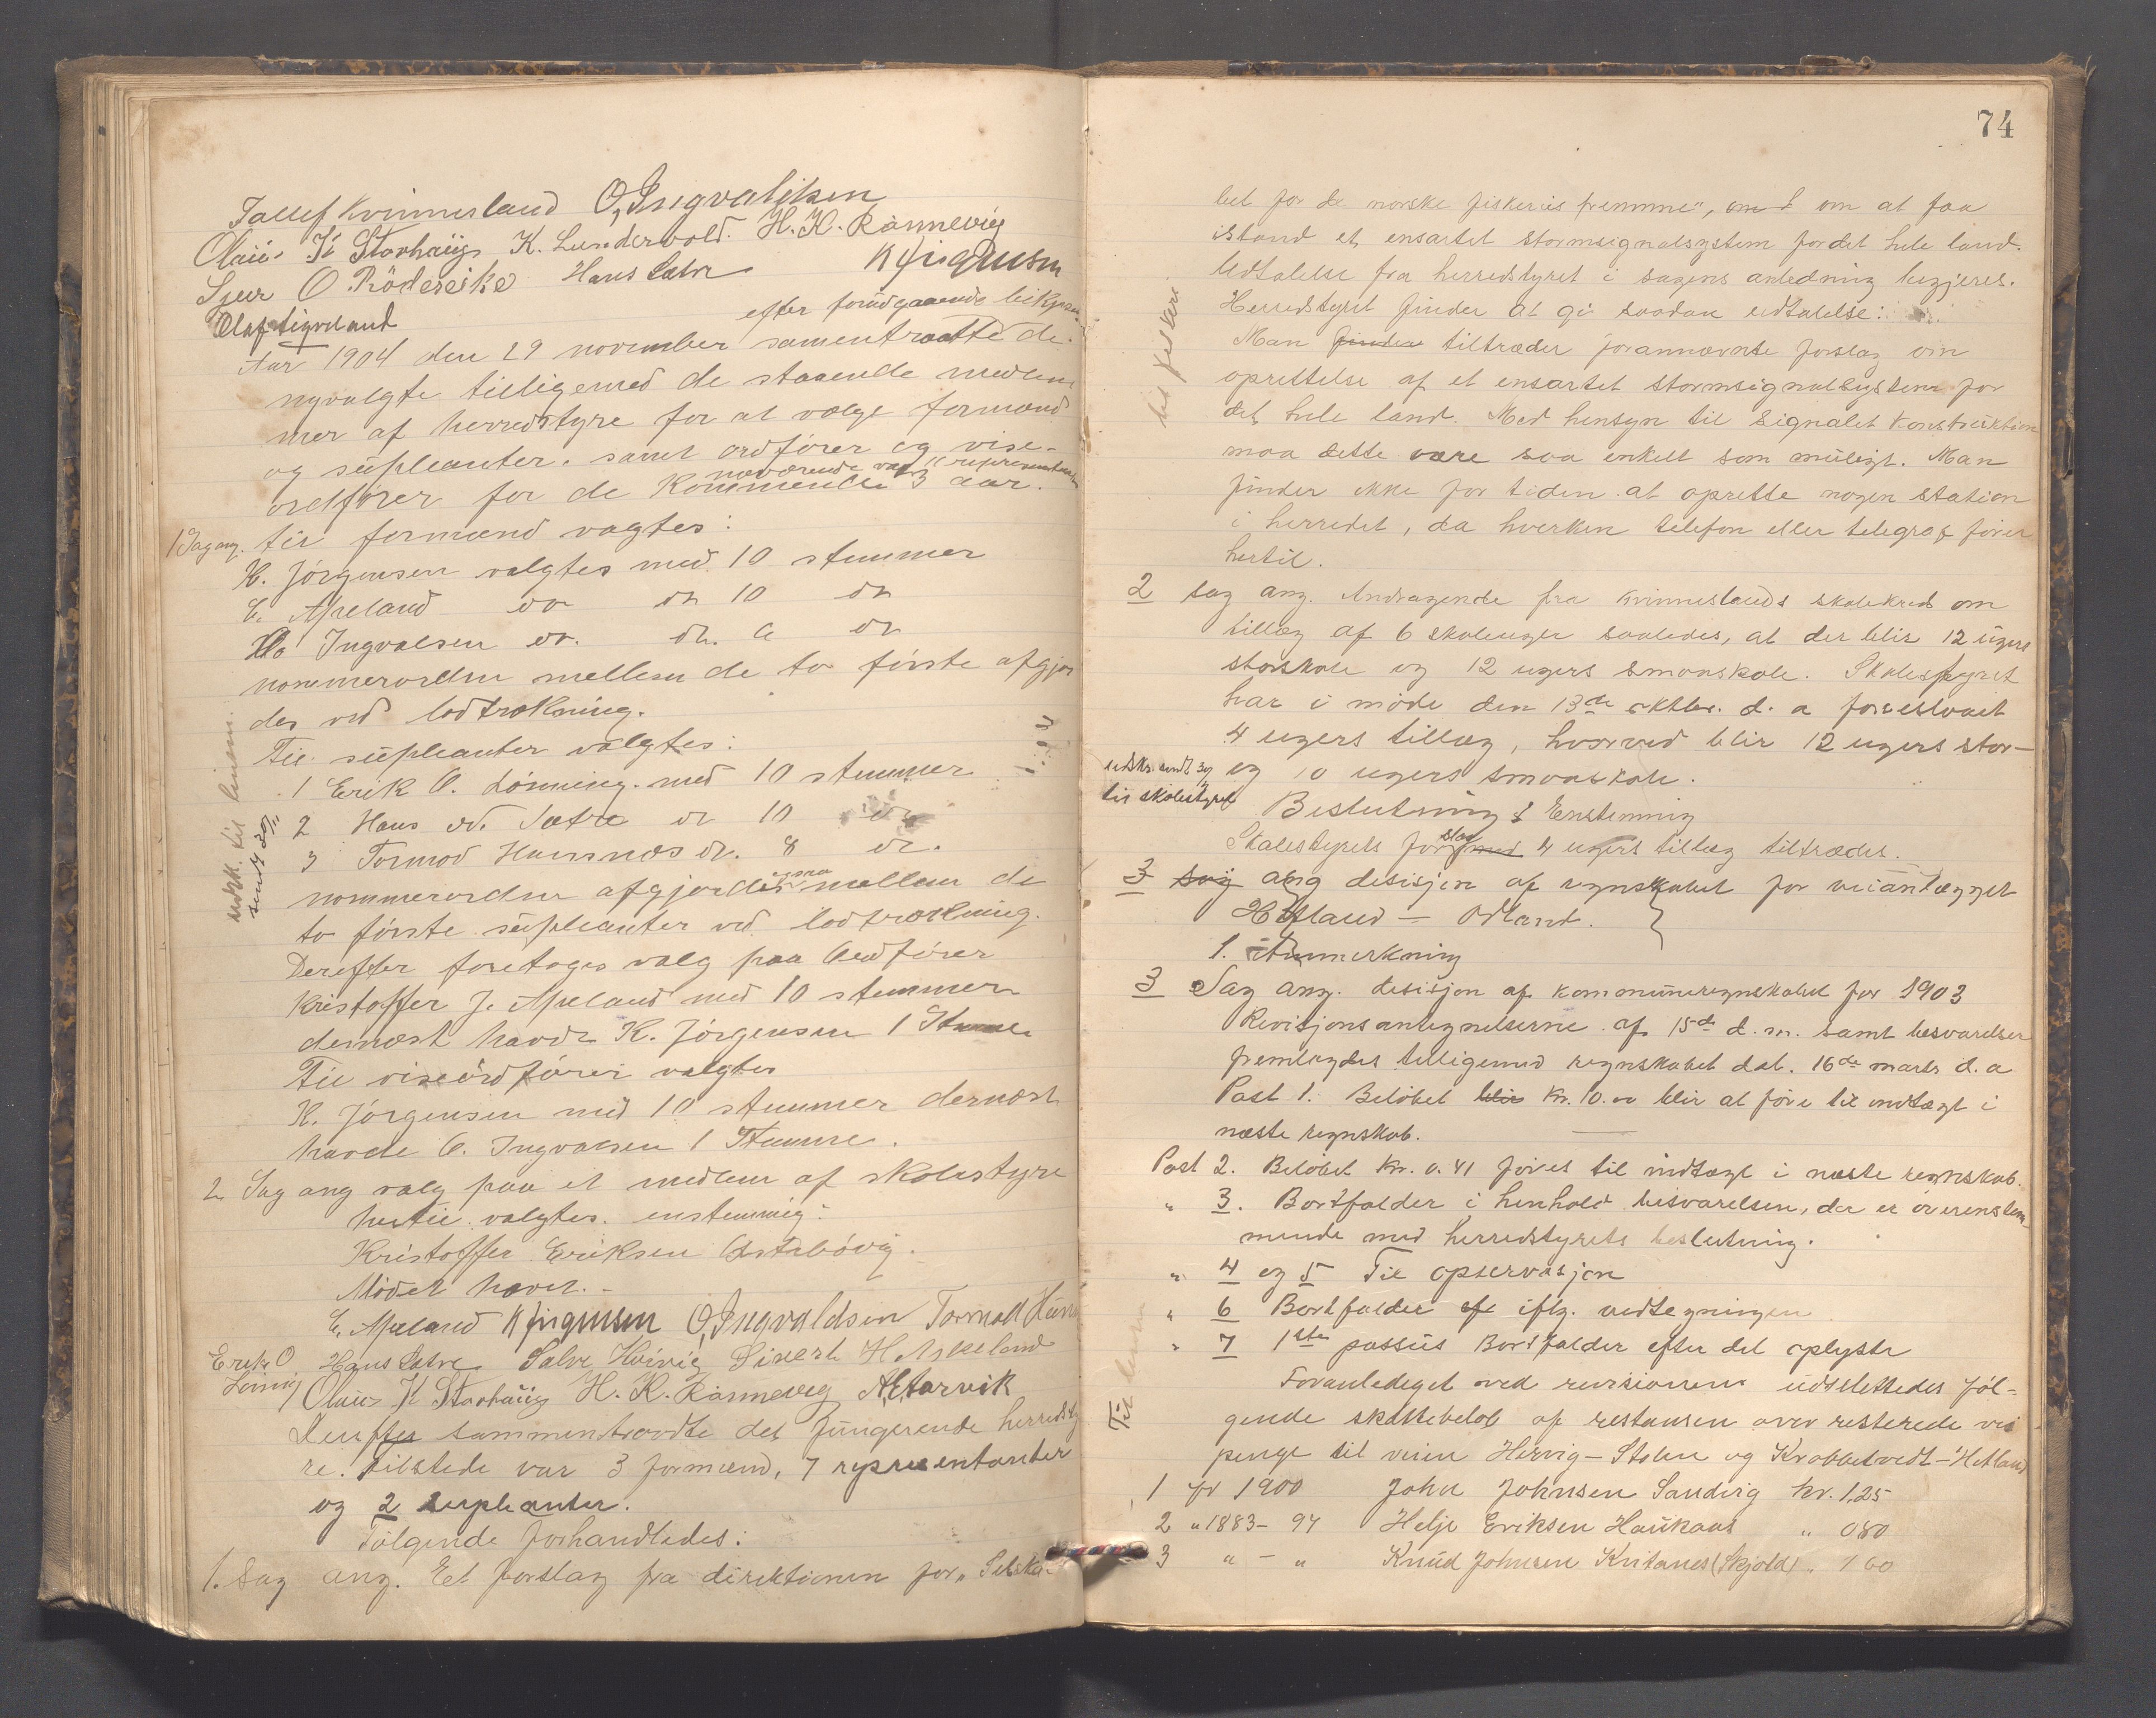 Tallef Kvinnesland O, Ingvaldsen
Olaus K Stovhaug K. Lundervold. H. K. Rönnevig
Sjur O RöDeseike Hans Sætre K Jörgensen
Olaf Sigveland
efter forudgaaende
Aar 1904 den 29 november samentraatte de
nyvalgte tilligemed de staaende medlem
mer af herredstyre for at vælge formænd
og supleanter. samt ordfører og vise-
nærværende var 11 representanter
ordfører for de kommende 3 aar.
1 Sag ang. til formænd valgtes:
K. Jörgensen valgtes med 10 stemmer
E. Apeland do do 10 do
O Ingvalsen do. do. 6 do
nommerorden mellem de to første afgjor
des ved lodtrækning.
Til supleanter valgtes:
1 Erik O. Lönning. med 10 stemmer
2 Hans O. Sætre do 10 do
3 Tormod Hausnes do. 8 do.
nommerorden afgjordes mellem de
to første supleanter ved lodtrækning.
Derefter foretoges valg paa Ordfører
Kristoffer J. Apeland med 10 stemmer
dernæst havde K. Jörgensen 1 Stemme
Til viseordfører valgtes
K. Jörgensen med 10 stemmer dernæst
havde O. Ingvalsen 1 Stemme.
2 Sag ang valg paa et medlem af skolestyre
hertil valgtes. enstemmig:
Kristoffer Eriksen Østebövig.
Mödet hævet.-
E. Apeland K Jörgensen O, Ingvaldsen Tormod
Erik O Lönnig Hans Sætre Salve Hervig Sivert H. Apeland
Olaus K Stovhaug H. K. Rönnevig A. E. Tarvik
Derefter sammentraadte det fungerende herredsty
re. tilstede var 3 formænd, 7 representanter
og 2 supleanter.
Følgende forhandledes:
1. Sag ang. Eet forslag fra direktionen for „Selska-
74
bet for de norske fiskeriers fremme", om at faa
istand et ensartet stormsignalsystem for det hele land.
Udtalelse fra herredstyret i sagens anledning begjæres.
Herredstyret finder at gi saadan udtalelse:
Man finder tiltræder forannævnte forslag om
oprettelse af et ensartet stormsignalsystem for
det hele land. Med hensyn til Signalet Konstruktion
maa dette være saa enkelt som muligt. Man
finder ikke for tiden at oprette nogen station
i herredet, da hverken telefon eller telegraf fører
hertil.
2 Sag ang. Andragende fra Kvinneslands skolekreds om
tillæg af 6 skoleuger saaledes, at der blir 12 ugers
storskole og 12 ugers smaaskole. Skolestyret
har i möde den 13de oktbr. d. a foreslaaet
4 ugers tillæg, hvorved blir 12 ugers stor-
og 10 ugers smaaskole.
udskr. sendt 30/ til skolestyret
Beslutning: Enstemmig
Skolestyrets forslag med 4 ugers tillæg tiltrædes.
3 Sag ang desisjon af regnskabet for veianlægget
Hetland — Odland.
1. Anmerkning
3 Sag ang. desisjon af kommuneregnskabet for 1903
Revisjonsantegnelserne af 15de d. m. samt besvarelser
fremlagdes tilligemed regnskabet dat. 16de marts d. a
Post 1. Belöbet blir Kr. 10.00 blir at føre til indtægt i
næste regnskab.
Post 2. Belöbet Kr. 0.41 føres til indtægt i næste regnskab.
„ 3. Bortfalder i henhold besvarelsen, der er overenstem-
mende med herredstyrets beslutning.
„ 4 og 5 Til opservasjon
„ 6 Bortfalder ef iflg. vedtegningen
„ 7 1ste passus Bortfalder efter det oplyste
Foranlediget ved revisionen udslettedes föl-
gende skattebelöb af restansen over resterede vei
penge til veien Hervig–Stolen og Krabbetvedt–Hetland
1 for 1900 John Johnsen Sandvig Kr. 1,25
2 „ 1883– 94 Helje Eriksen Haukaas „ 0 80
3 „ – „ Knud Johnsen Kritanes (Skjold) „ 1 60